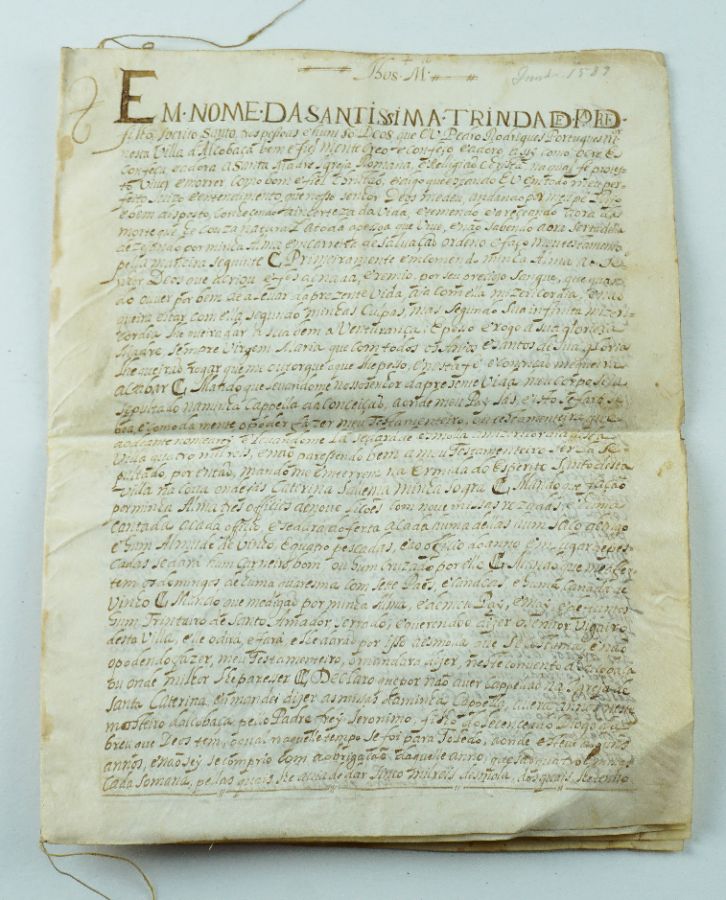 Jhus. M.
1587
EM·NOME·DA SANTISSIMA·TRINDADE·PADRE·
filho, spirito Santo, tres pessoas e hum so Deos que Eu Pedro Rodrigues Portugues
nesta Villa d'Alcobaça bem e fielmente creo e confeso e adoro
confesa e adora a Santa Madre Igreja Romana, e Religião Cristã, na qual fe protesto
Viver e morrer como bom e fiel Christão, e digo que estando Eu em todo meu per-
feito Juizo e entendimento, que noso senhor Deos me deu, andando por meu pe
e bem disposto, Conheçendo a inçerteza da Vida, e temendo e reçeando a ora da
morte que he Couza natural a toda a pesoa que Vive, e não sabendo a ora
dezejando por minha Alma em carreta de Salvação ordeno e faço meu testamento
pella maneira seguinte C Primeiramente encomendo minha Alma ao Se-
nhor Deos que a criou e fes de nada, e remio por seu preçioso Sangue, que quan-
do ouver por bem de a levar da prezente Vida, aja com ella mizericordia, e não
queira estar com ella segundo minhas Culpas mas segundo Sua infinita mizeri-
cordia lhe queira dar a sua bem aventurança: E peço e rogo á Sua glorioza
sempre Virgem Maria que com todos os Anjos e Santos de Sua gloria
lhe queirão rogar que me outorgue o que lhe peso, e nesta fe e confição me queira
acabar C Mando que levandome nosso senhor da prezente Vida meu corpo seja
sepultado na minha Cappella da Conceição, aonde meu Pay jas, e isto se fará
boa e comodamente o poder fazer meu Testamenteiro, ou testamenteira que
adeante nomearei
Villa quatro mil reis, e não pareçendo bem a meu Testamenteiro ser la se-
pultado, por então, mando me enterrem na Ermida do Espirito Santo desta
Villa na Cova onde jas Caterina minha sogra C Mando que fação
por minha Alma tres offiçios de nove lições com nove missas rezadas, e huma
cantada a cada offiçio e se dara de oferta a cada huma dellas hum saco de trigo
e hum Almude de Vinho, e quatro pescadas, e no offiçio do anno em lugar de pes-
cadas se dará hum carneiro bom ou hum Cruzado por elle C Mando que me ofer-
tem os domingos de huma quaresma com sete Pães, e candeas, e huma Canada de
Vinho C Mando que me digão por minha Alma, e de meu Pay, e may,
hum Trintairo de Santo Amador serrado, e querendo dizer o Senhor Vigairo
desta Villa, elle o dirá, e fará, e lhe darão por isso a esmola que se costuma, e não
o podendo fazer, meu Testamenteiro, o mandara dizer, neste convento d'Alcobaça
ou onde milhor lhe pareser C Declaro que por não aver Cappellão na Igreja de
Santa Caterina, eu mandei dizer as missas da minha Cappella
mosteiro d'Alcobaça pello Padre frey Jeronimo, filho do
breu que Deos tem, o qual naquelle tempo se foi para Toledo, aonde esteve alguns
annos, e não sey se comprio com a obrigação daquelle anno, que são quatro missas
Cada somana, pellas quais lhe avia de dar sinco mil reis desmola, dos quais lhe tenho